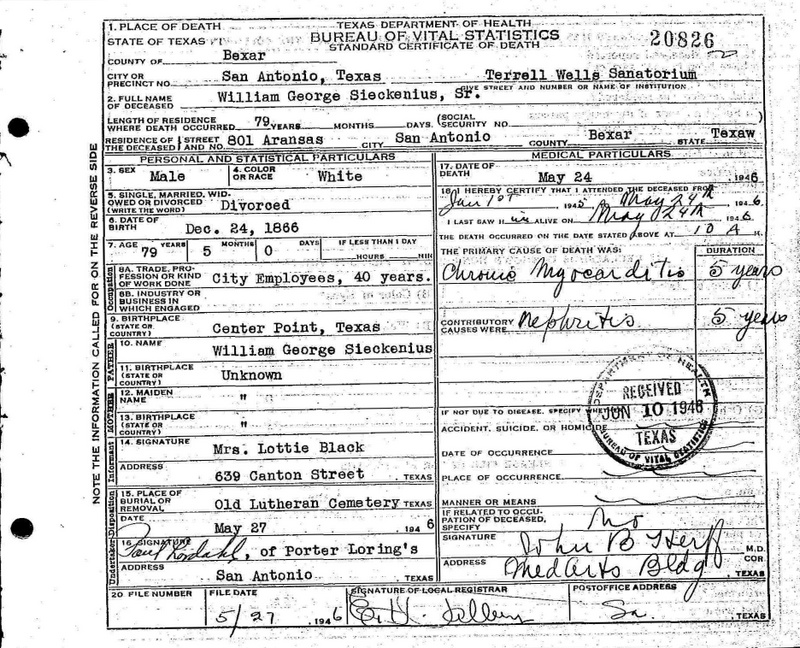 1. PLACE OF DEATH
STATE OF TEXAS
TEXAS DEPARTMENT OF HEALTH
BUREAU OF VITAL STATISTICS
STANDARD CERTIFICATE OF DEATH
20826
COUNTY OF Bexar
CITY OR PRECINCT NO. San Antonio, Texas Terrell Wells Sanatorium
GIVE STREET AND NUMBER OR NAME OF INSTITUTION
2. FULL NAME OF DECEASED William George Sieckenius, Sr.
LENGTH OF RESIDENCE WHERE DEATH OCCURRED 79 YEARS MONTHS DAYS. (SOCIAL SECURITY NO.
RESIDENCE OF THE DECEASED STREET AND NO. 801 Aransas CITY San Antonio COUNTY Bexar STATE Texaw
PERSONAL AND STATISTICAL PARTICULARS
3. SEX Male 4. COLOR OR RACE White
5. SINGLE, MARRIED, WIDOWED OR DIVORCED (WRITE THE WORD) Divorced
6. DATE OF BIRTH Dec. 24, 1866
7. AGE 79 YEARS 5 MONTHS 0 DAYS IF LESS THAN 1 DAY HOURS MIN
Occupation
8A. TRADE, PROFESSION OR KIND OF WORK DONE City Employees, 40 years.
8B. INDUSTRY OR BUSINESS IN WHICH ENGAGED
9. BIRTHPLACE (STATE OR COUNTRY) Center Point, Texas
FATHER
10. NAME William George Sieckenius
11. BIRTHPLACE (STATE OR COUNTRY) Unknown
MOTHER
12. MAIDEN NAME "
13. BIRTHPLACE (STATE OR COUNTRY) "
Informant
14. SIGNATURE Mrs. Lottie Black
ADDRESS 639 Canton Street TEXAS
Undertaker-Disposition
15. PLACE OF BURIAL OR REMOVAL Old Lutheran Cemetery TEXAS
DATE May 27 1946
16. SIGNATURE Paul , of Porter Loring's
ADDRESS San Antonio TEXAS
MEDICAL PARTICULARS
17. DATE OF DEATH May 24 1946
18. I HEREBY CERTIFY THAT I ATTENDED THE DECEASED FROM
Jan 1st 1945 May 24th 1946
I LAST SAW H im ALIVE ON May 24th 1946
THE DEATH OCCURRED ON THE DATE STATED ABOVE AT 10 A M.
THE PRIMARY CAUSE OF DEATH WAS: DURATION
Chronic Myocarditis 5 years
CONTRIBUTORY CAUSES WERE Nephritis 5 years
DEPARTMENT OF HEALTH
RECEIVED
JUN 10 1946
TEXAS
BUREAU OF VITAL STATISTICS
IF NOT DUE TO DISEASE, SPECIFY
ACCIDENT, SUICIDE, OR HOMICIDE
DATE OF OCCURRENCE
PLACE OF OCCURRENCE
MANNER OR MEANS
IF RELATED TO OCCUPATION OF DECEASED, SPECIFY No
SIGNATURE John B Herff M.D.
COR.
ADDRESS Med Arts Bldg TEXAS
20 FILE NUMBER FILE DATE 5/27 1946 SIGNATURE OF LOCAL REGISTRAR POSTOFFICE ADDRESS Sa. TEXAS
NOTE THE INFORMATION CALLED FOR ON THE REVERSE SIDE